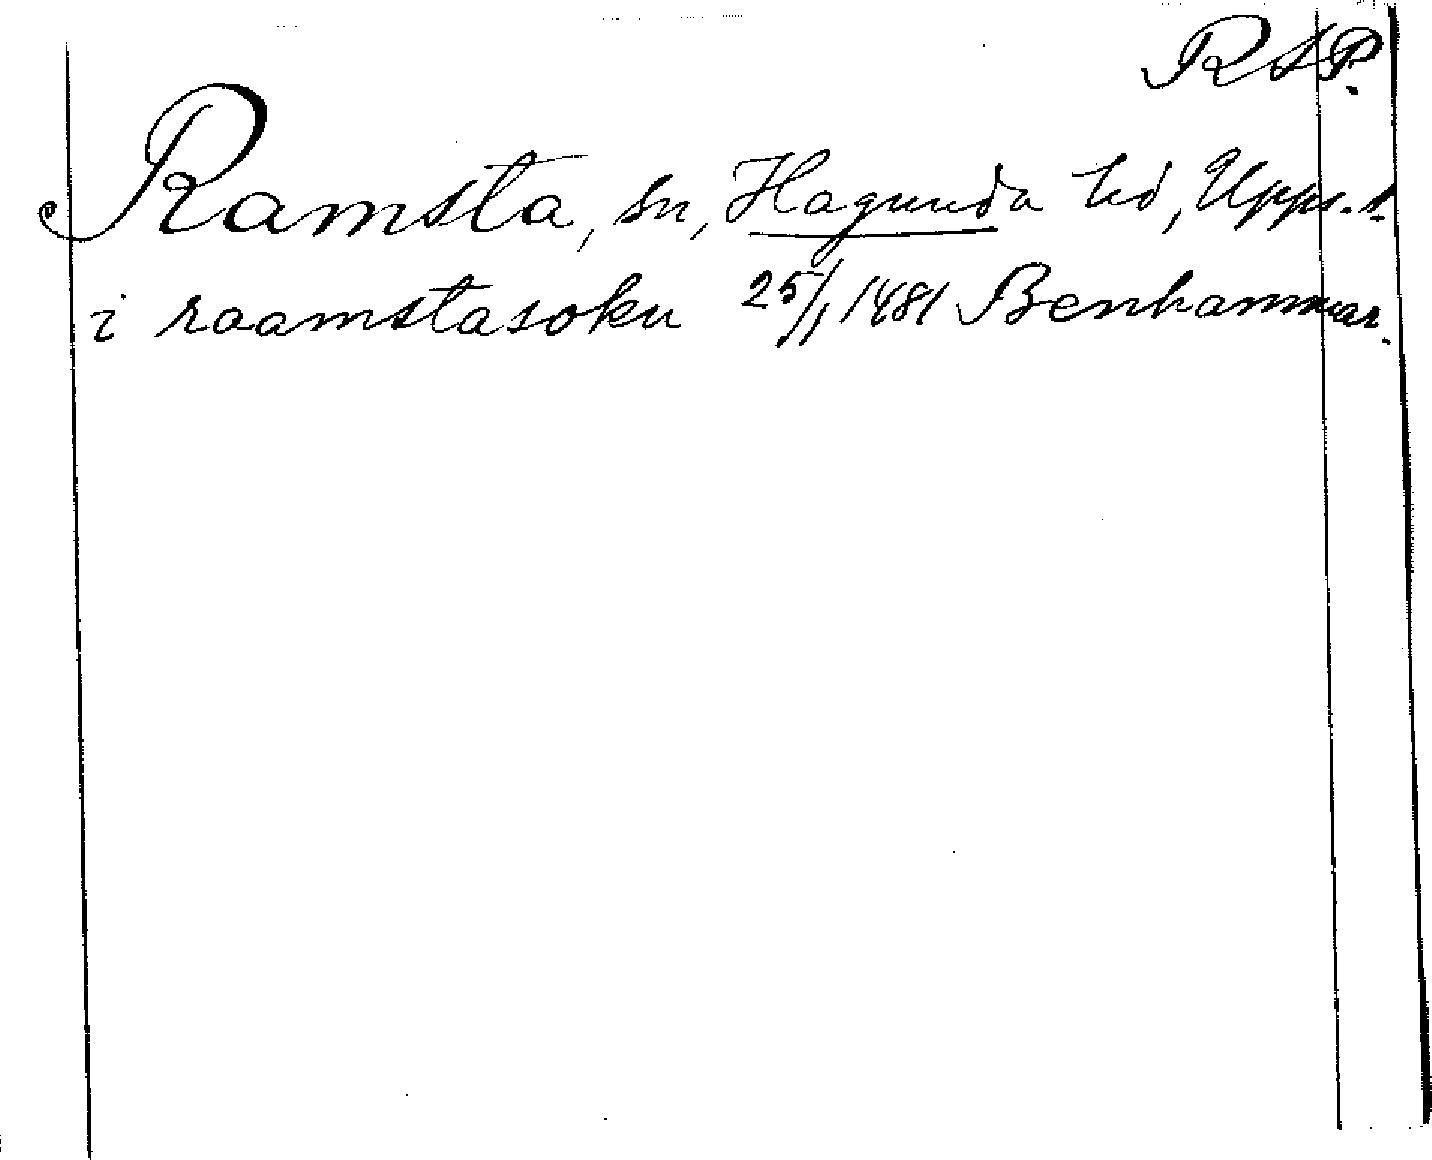 RAP.
Ramsta, sn, Hagunda hd, Upps. l.
i raamstasokn 25/11 1481 Benhammar.